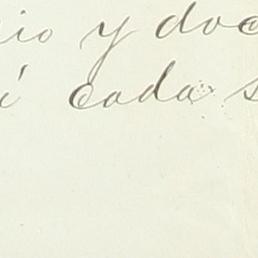 io y doc
i cada s